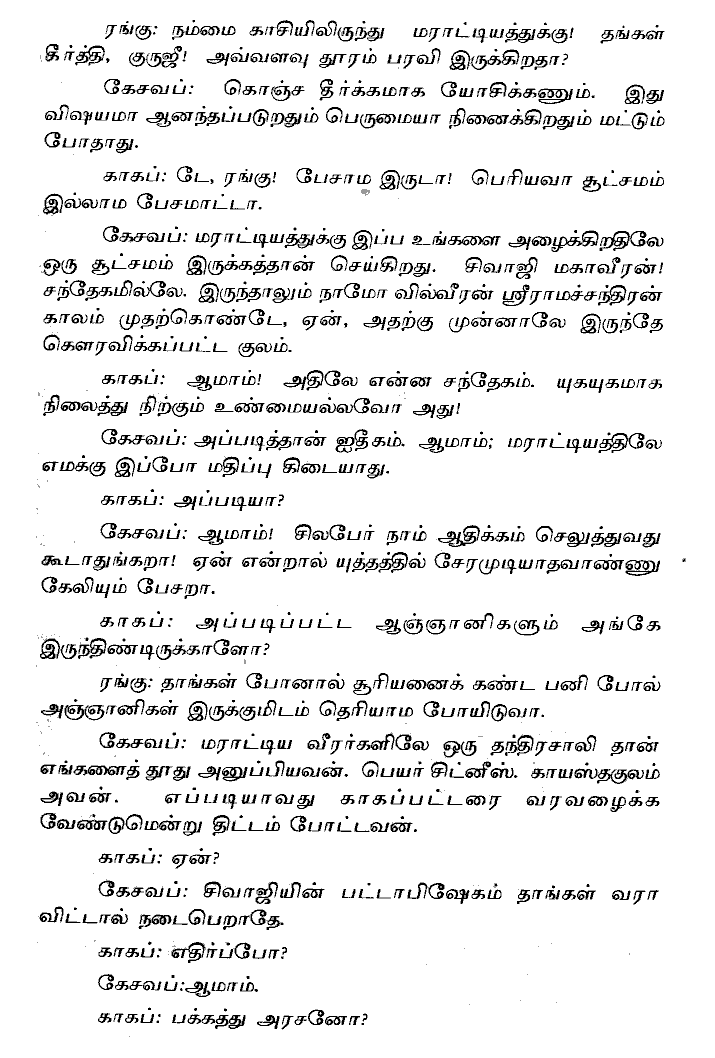 ரங்கு: நம்மை காசியிலிருந்து மராட்டியத்துக்கு! தங்கள்
கீர்த்தி, குருஜீ! அவ்வளவு தூரம் பரவி இருக்கிறதா?
கேசவப்: கொஞ்ச தீர்க்கமாக யோசிக்கணும். இது
விஷயமா ஆனந்தப்படுறதும் பெருமையா நினைக்கிறதும் மட்டும்
போதாது.
காகப்: டே, ரங்கு! பேசாம இருடா! பெரியவா சூட்சமம்
இல்லாம பேசமாட்டா.
கேசவப்: மராட்டியத்துக்கு இப்ப உங்களை அழைக்கிறதிலே
ஒரு சூட்சமம் இருக்கத்தான் செய்கிறது. சிவாஜி மகாவீரன்!
சந்தேகமில்லே. இருந்தாலும் நாமோ வில்வீரன் ஸ்ரீராமச்சந்திரன்
காலம் முதற்கொண்டே, ஏன், அதற்கு முன்னாலே இருந்தே
கௌரவிக்கப்பட்ட குலம்.
காகப்: ஆமாம்! அதிலே என்ன சந்தேகம். யுகயுகமாக
நிலைத்து நிற்கும் உண்மையல்லவோ அது!
கேசவப்: அப்படித்தான் ஐதீகம். ஆமாம்; மராட்டியத்திலே
எமக்கு இப்போ மதிப்பு கிடையாது.
காகப்: அப்படியா?
கேசவப்: ஆமாம்! சிலபேர் நாம் ஆதிக்கம் செலுத்துவது
கூடாதுங்கறா! ஏன் என்றால் யுத்தத்தில் சேரமுடியாதவாண்ணு
கேலியும் பேசறா.
காகப்: அப்படிப்பட்ட ஆஞ்ஞானிகளும் அங்கே
இருந்திண்டிருக்காளோ?
ரங்கு: தாங்கள் போனால் சூரியனைக் கண்ட பனி போல்
அஞ்ஞானிகள் இருக்குமிடம் தெரியாம போயிடுவா.
கேசவப்: மராட்டிய வீரர்களிலே ஒரு தந்திரசாலி தான்
எங்களைத் தூது அனுப்பியவன். பெயர் சிட்னீஸ். காயஸ்தகுலம்
அவன். எப்படியாவது காகப்பட்டரை வரவழைக்க
வேண்டுமென்று திட்டம் போட்டவன்.
காகப்: ஏன்?
கேசவப்: சிவாஜியின் பட்டாபிஷேகம் தாங்கள் வரா
விட்டால் நடைபெறாதே.
காகப்: எதிர்ப்போ?
கேசவப்:ஆமாம்.
காகப்: பக்கத்து அரசனோ?